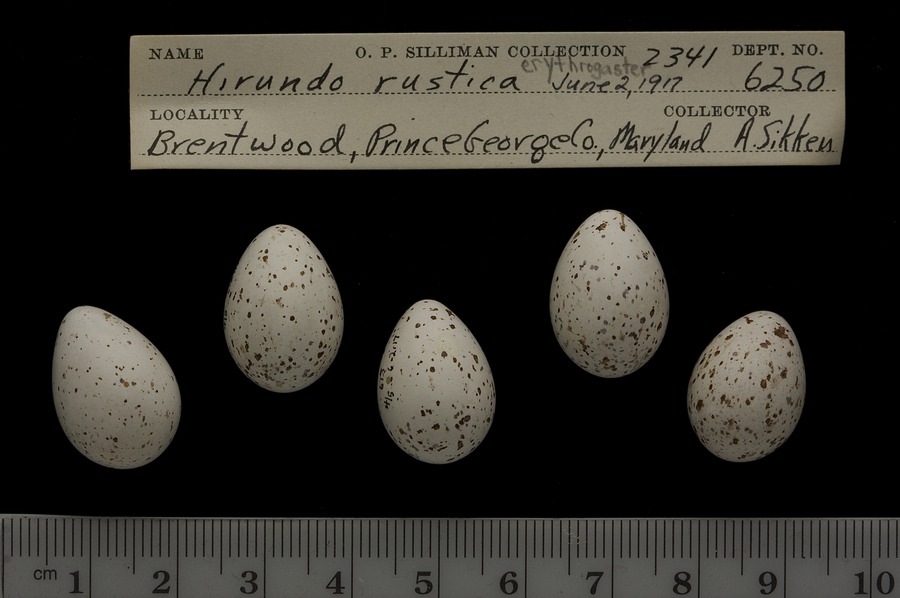 NAME O. P. SILLIMAN COLLECTION 2341 DEPT. NO.
erythrogaster
Hirundo rustica June 2, 1917 6250
LOCALITY COLLECTOR
Brentwood, Prince George Co., Maryland A. Sikken
cm 1 2 3 4 5 6 7 8 9 10